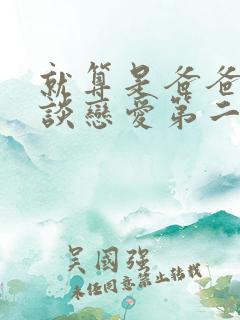 就算是爸爸
談戀愛第二
吳國强
未任同意禁止转载